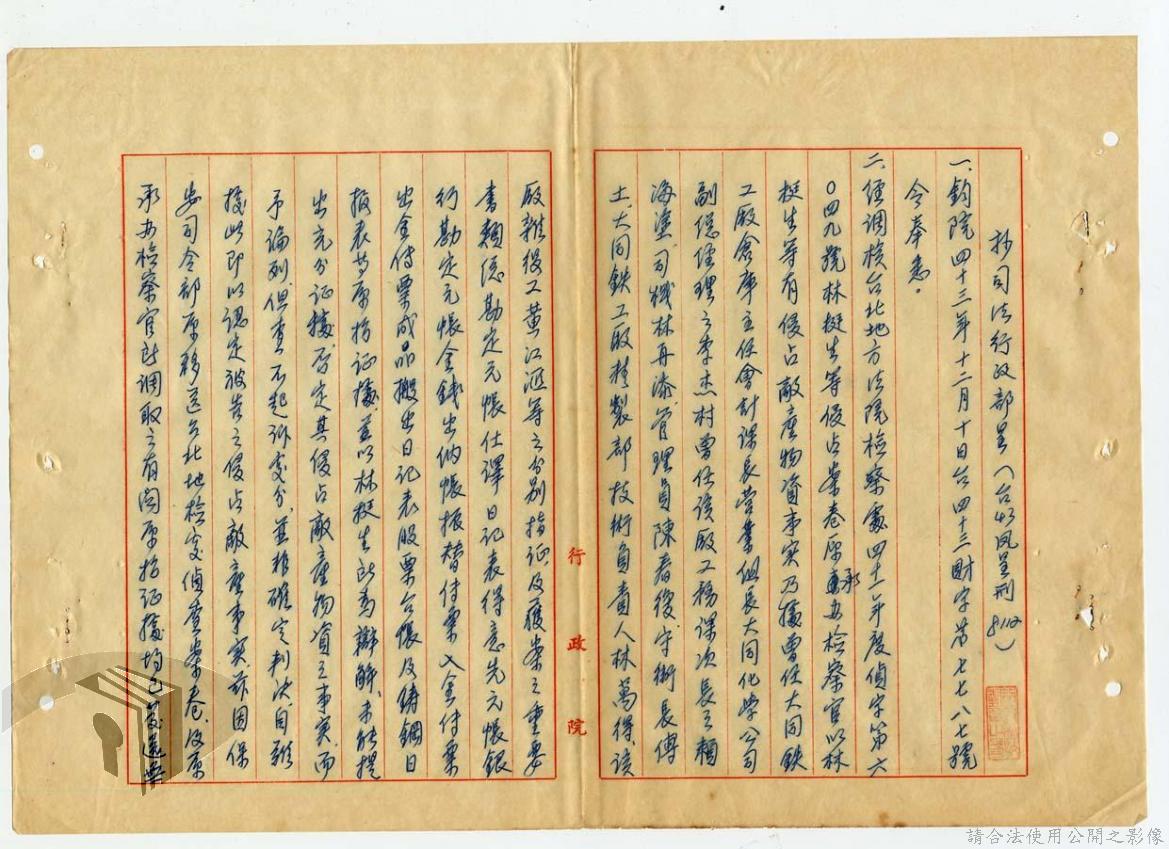 抄司法行政部呈（台43鳳呈刑8112）
一、鈞院四十三年十二月十日台四十三財字第七七八七號
令奉悉。
二、經調核台北地方法院檢察處四十一年度偵字第六
〇四九號林挺生等侵占案卷原承办檢察官以林
挺生等有侵占敵產物資事实乃據曾任大同鉄
工廠倉庫主任會計課長营業組長大同化学公司
副總經理之李杰村曾任該廠工務課次長之賴
海塗、司機林再添、管理員陳春後、守衛長傅
土、大同鉄工廠制製部技術負責人林萬得、該
廠雜役工黄江滙等之分别指证、及獲案之重要
書類總勘定元帳仕譯日記表得意先元帳銀
行勘定元帳金錢出納帳振替付票入金付票
出金付票成品搬出日記表股票台帳及鋳鋼日
报表等为指证據、並以林挺生所为辯解、未能提
出充分证據否定其侵占敵產物資之事实、而
予論列、但查不起訴處分、並非確定判决、自难
據此即以認定被告之侵占敵產事实、茲因保
安司令部原移送台北地檢處偵查案卷、及原
承办檢察官所調取之有関原指证據均已發還無
行政院
請合法使用公開之影像